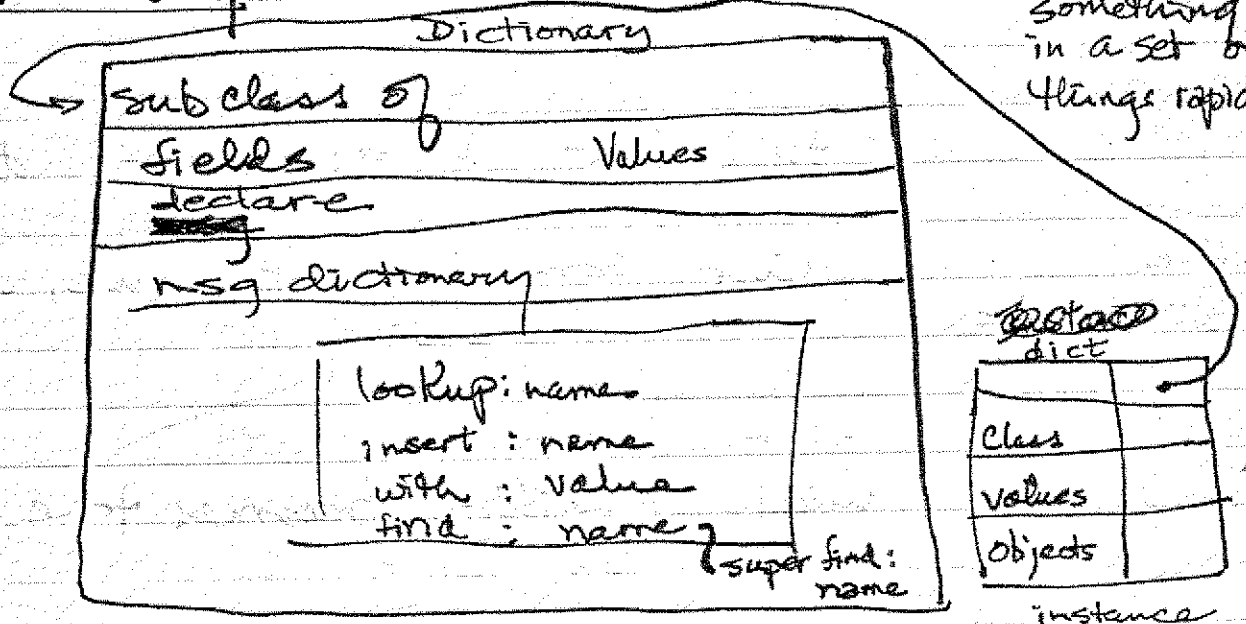 Dictionary
something
in a set
things
subclass of
fields Values
declare
msg dictionary
lookup: name
insert : name
with : value
find : name
super find:
name
dict
Class
values
objects
instance